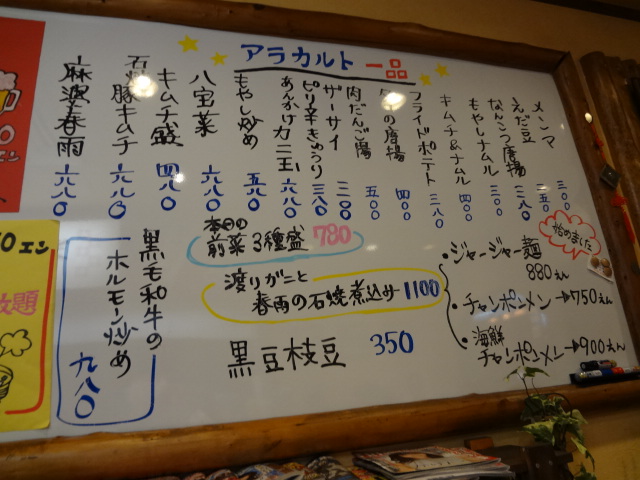 アラカルト 一品
メンマ 三〇〇
えだ豆 二五〇
なんこつ唐揚
もやしナムル 三〇〇
キムチ&ナムル 四〇〇
フライドポテト 三八〇
の唐揚 四〇〇
肉だんご揚 五〇〇
ザーサイ 二〇〇
ピリ辛きゅうり 三八〇
あんかけカニ玉 六八〇
もやし炒め 五八〇
八宝菜 六八〇
キムチ盛 四八〇
石焼豚キムチ 六八〇
麻婆春雨 六八〇
始めました
・ジャージャー麺
880えん
・チャンポンメン→750えん
・海鮮
チャンポンメン→900えん
本日の
前菜3種盛 780
渡りガニと
春雨の石焼煮込み 1100
黒豆枝豆 350
黒毛和牛の
ホルモン炒め
九八〇
エン
放題
エン